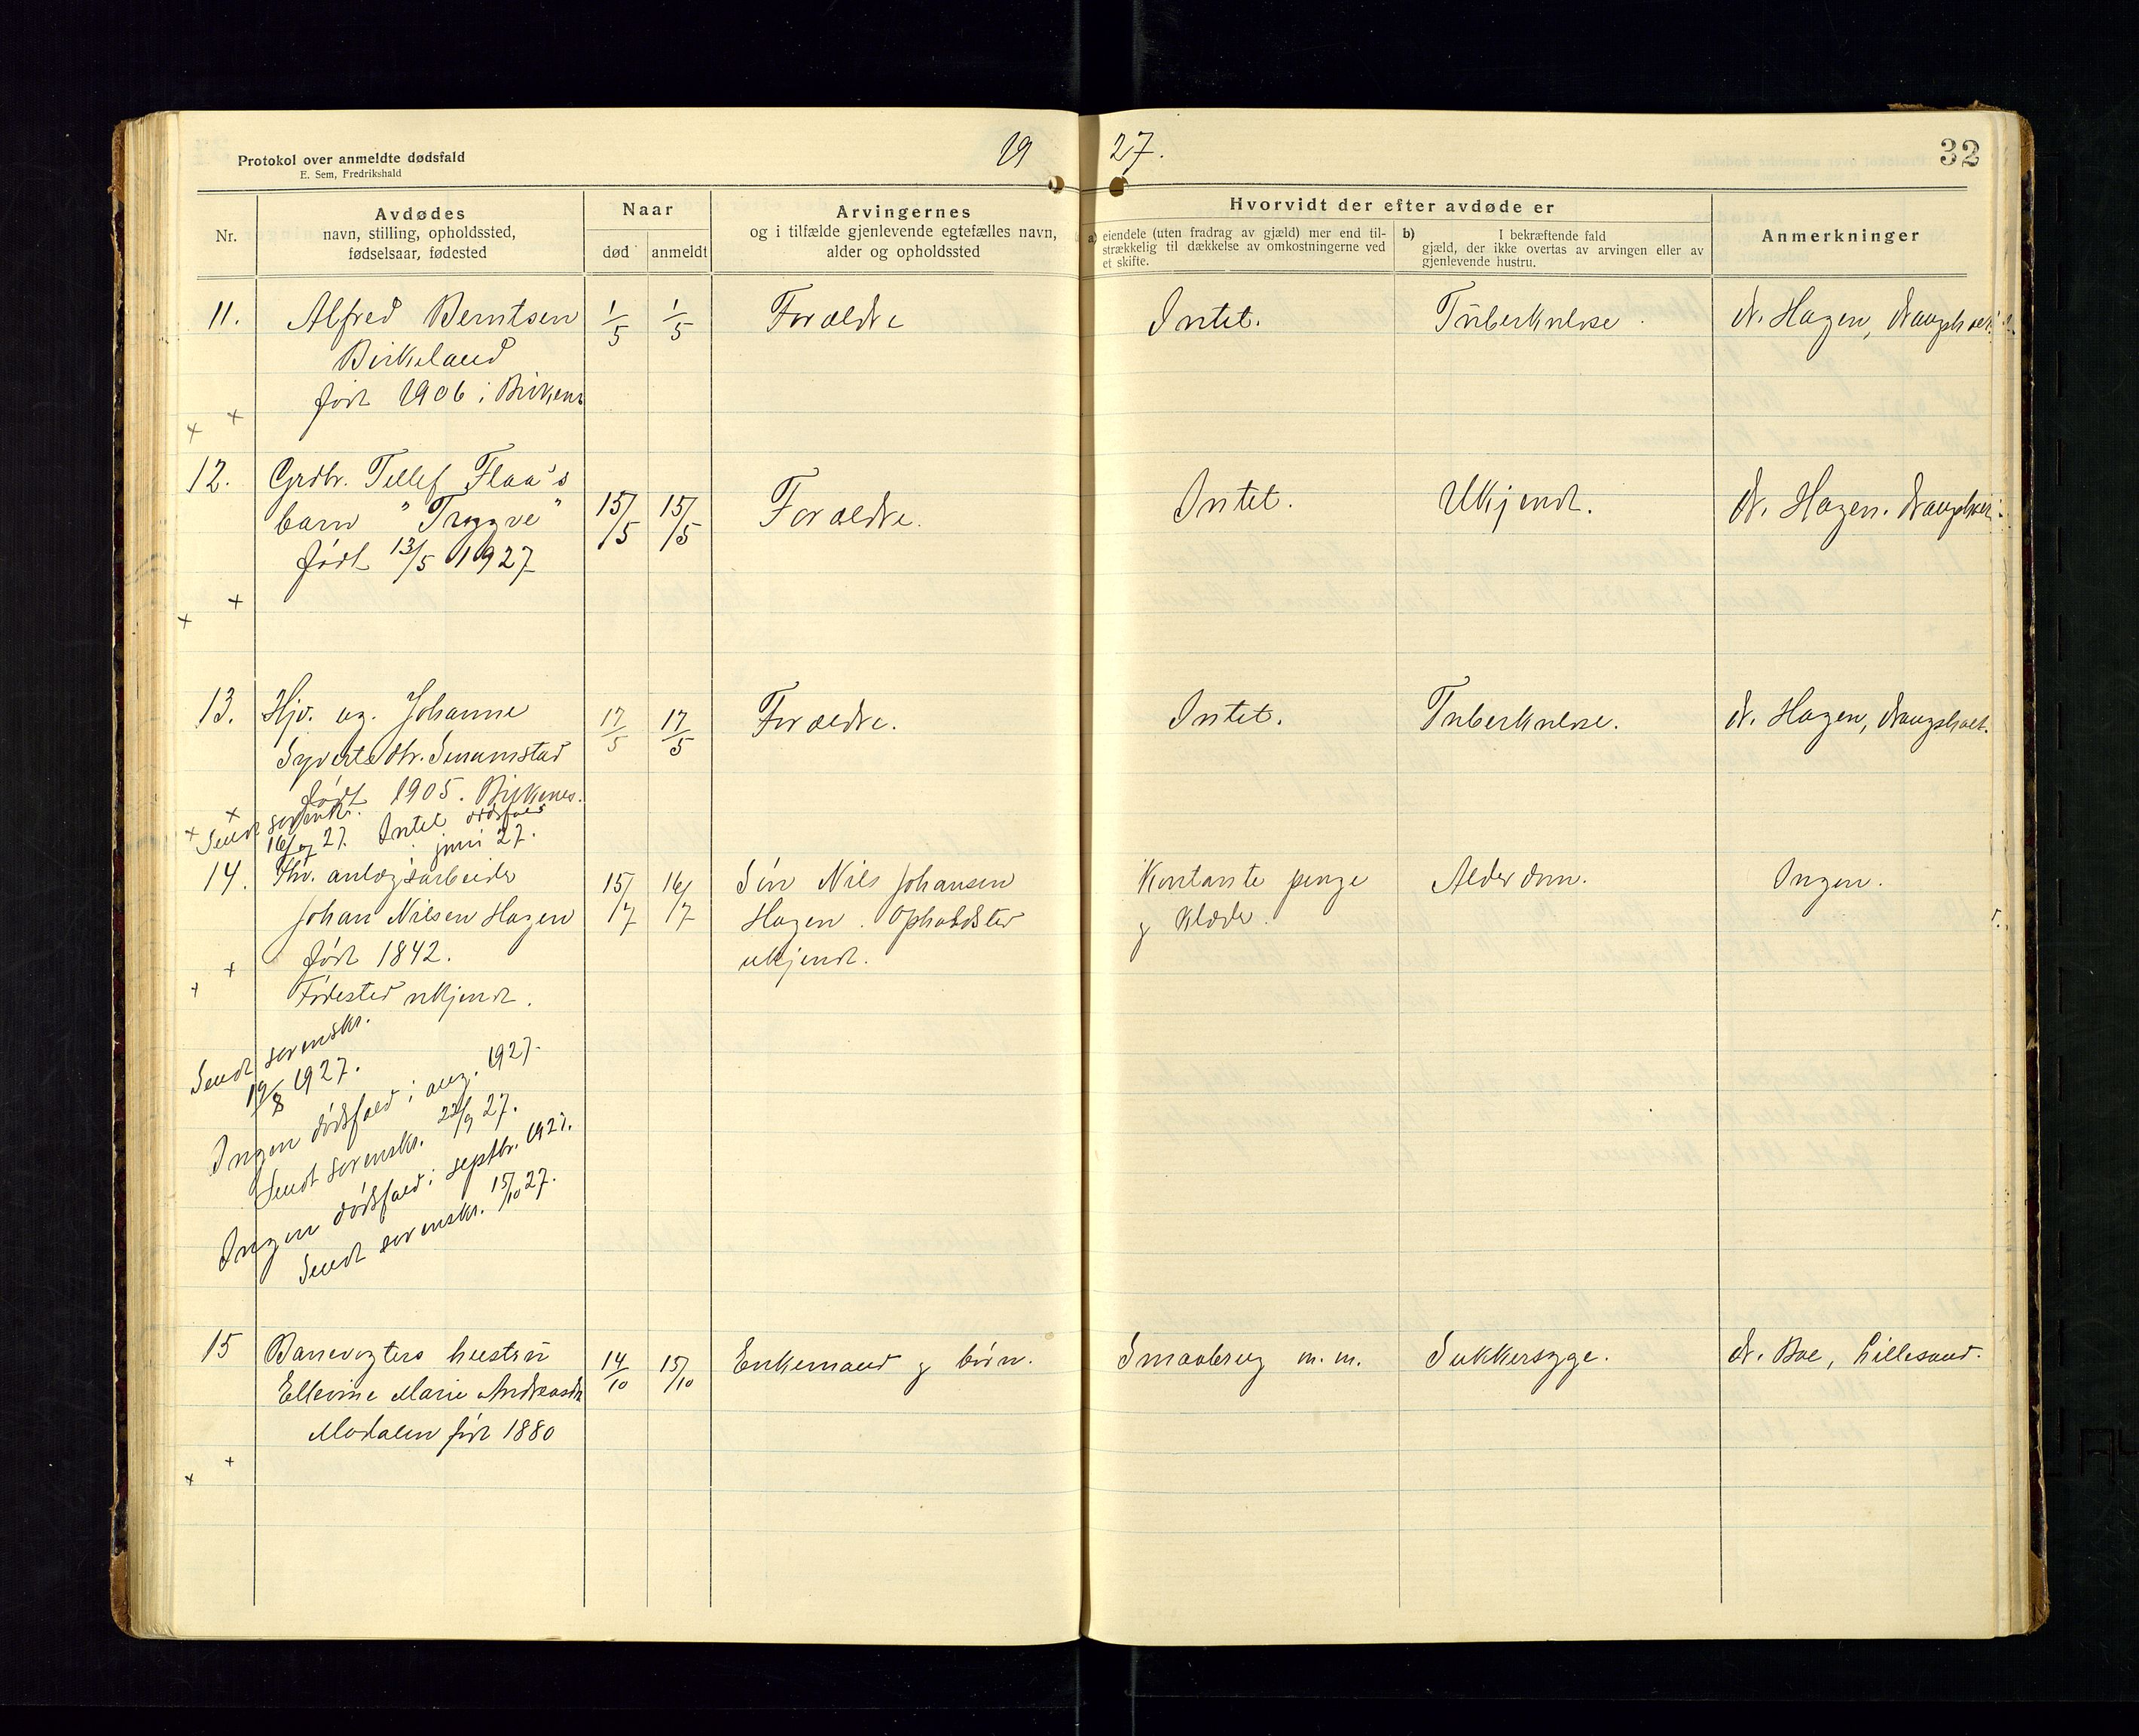 Protokol over anmeldte dødsfald
E. Sem, Fredrikshald
19 27.
32
Nr.
Avdødes
navn, stilling, opholdssted,
fødselsaar, fødested
Naar
død
anmeldt
Arvingernes
og i tilfælde gjenlevende egtefælles navn,
alder og opholdssted
Hvorvidt der efter avdøde er
a) eiendele (uten fradrag av gjæld) mer end til-
strækkelig til dækkelse av omkostningerne ved
et skifte.
b) I bekræftende fald
gjæld, der ikke overtas av arvingen eller av
gjenlevende hustru.
Anmerkninger
11.
Alfred Berntsen
Birkeland
født 1906 i Birkenes
1/5
1/5
Forældre
Intet.
Tuberkulose.
dr. Hagen, Draugsholt.
12.
Grdbr. Tellef Flaa's
barn "Trygve"
født 13/5 1927
15/5
15/5
Forældre.
Intet.
Ukjendt.
dr. Hagen. Draugsholt.
13.
Hjv. ug. Johanne
Syvertsdtr. Senumstad
født 1905. Birkenes.
17/5
17/5
Forældre.
Intet.
Tuberkulose.
dr. Hagen, Draugsholt.
Sendt sorenskr.
27. Intet dødsfald
juni 27.
14.
Fhv. anlægsarbeider
Johan Nilsen Hagen
født 1842.
Fødested ukjendt.
15/7
16/7
Søn Nils Johansen
Hagen. Opholdsted
ukjendt.
Kontante penge
og klæder.
Alderdom.
Ingen.
Sendt sorenskr.
19/8 1927.
Ingen dødsfald i aug. 1927.
Sendt sorenskr. 22/9 27.
Ingen dødsfald i septbr. 1927.
Sendt sorenskr. 15/10 27.
15
Banevogters hustru
Ellevine Marie Andreasdtr
Modalen født 1880
14/10
15/10
Enkemand og børn.
Smaabrug m.m.
Sukkersyge.
dr. Boe, Lillesand.